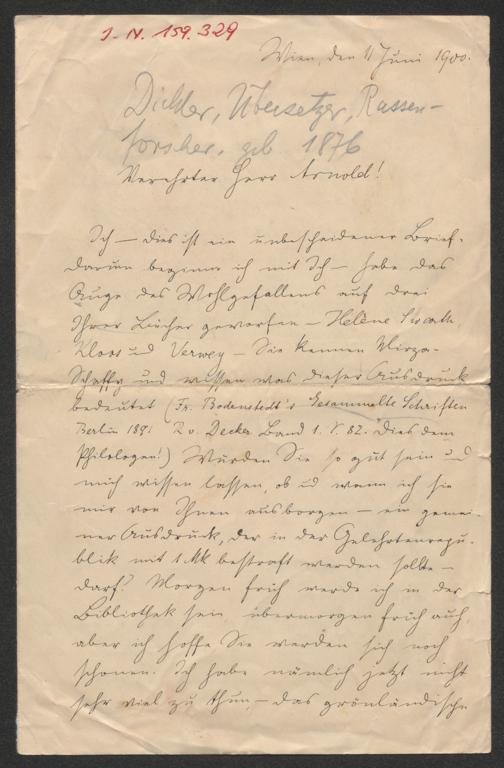 I. N. 159.329
Wien, den 11 Juni 1900.
Dichter, Übersetzer, Rassen-
forscher, geb 1876
Verehrter Herr Arnold!
Ich — dies ist ein unbescheidener Brief.
darum beginne ich mit Ich — habe das
Auge des Wohlgefallens auf drei
Ihrer Bücher geworfen — Hélène Swarth
Kloos und Verwey — Sie kennen Mirza-
Schaffy und wissen was dieser Ausdruck
bedeutet (Fr. Bodenstedt's Gesammelte Schriften
Berlin R v. Decker Band 1. S 82. Dies dem
Philologen!) Würden Sie so gut sein und
mich wissen lassen, ob und wann ich sie
mir von Ihnen ausborgen — ein gemei-
ner Ausdruck, der in der Gelehrtenrepu-
blik mit 1 Mk bestraft werden sollte —
darf? Morgen früh werde ich in der
Bibliothek sein übermorgen früh auch,
aber ich hoffe Sie werden sich noch
schonen. Ich habe nämlich jetzt nicht
sehr viel zu thun, — das grönländische